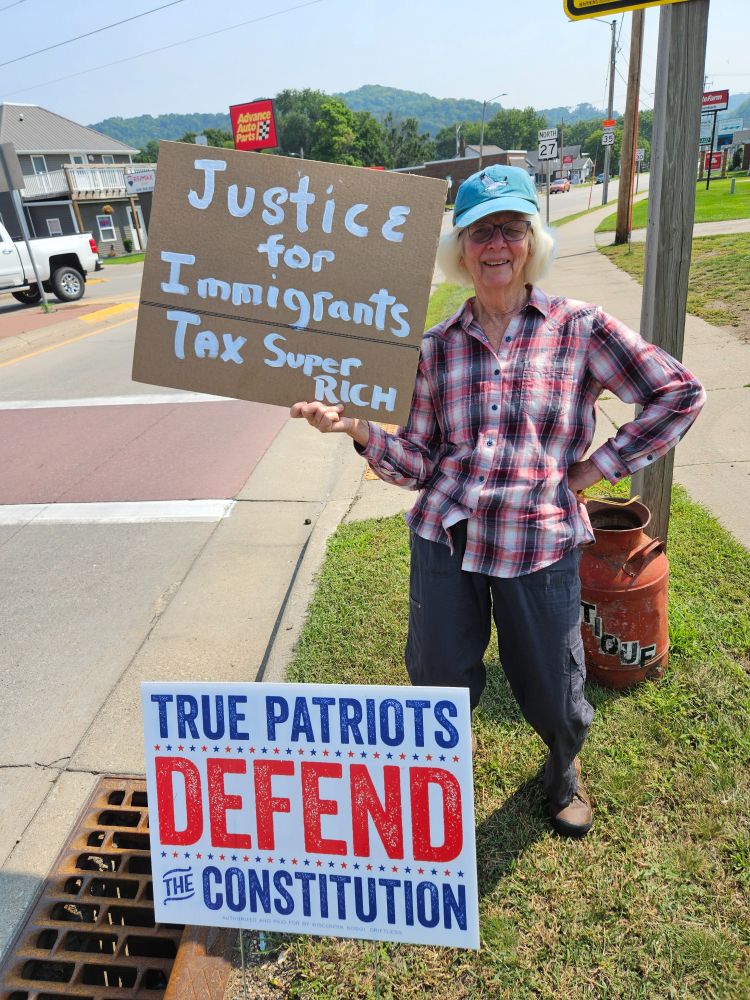 Advance
Auto Parts
NORTH
27
35
RE/MAX
Justice
for
Immigrants
Tax Super
RICH
TIQUE
TRUE PATRIOTS
DEFEND
THE CONSTITUTION
AUTHORIZED AND PAID FOR BY WISCONSIN 50501 DRIFTLESS